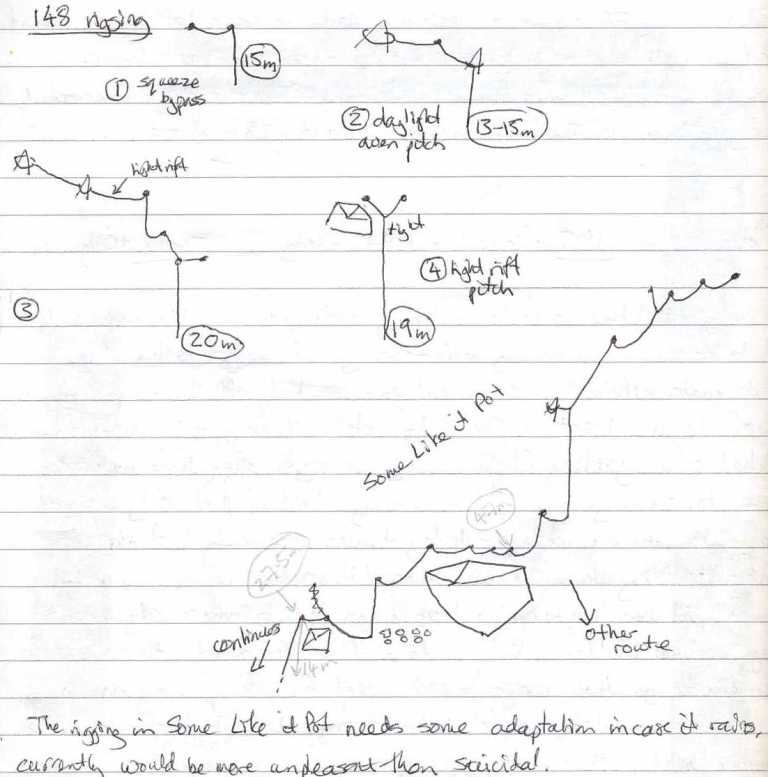 148 rigging
15m
① squeeze
bypass
② daylight
aven pitch
13-15m
tight rift
③
20m
tight
④ tight rift
pitch
19m
Some Like it Pot
27.5m
continues
14m
other
route
The rigging in Some Like it Pot needs some adaptation in case it rains,
currently would be more unpleasant than suicidal.